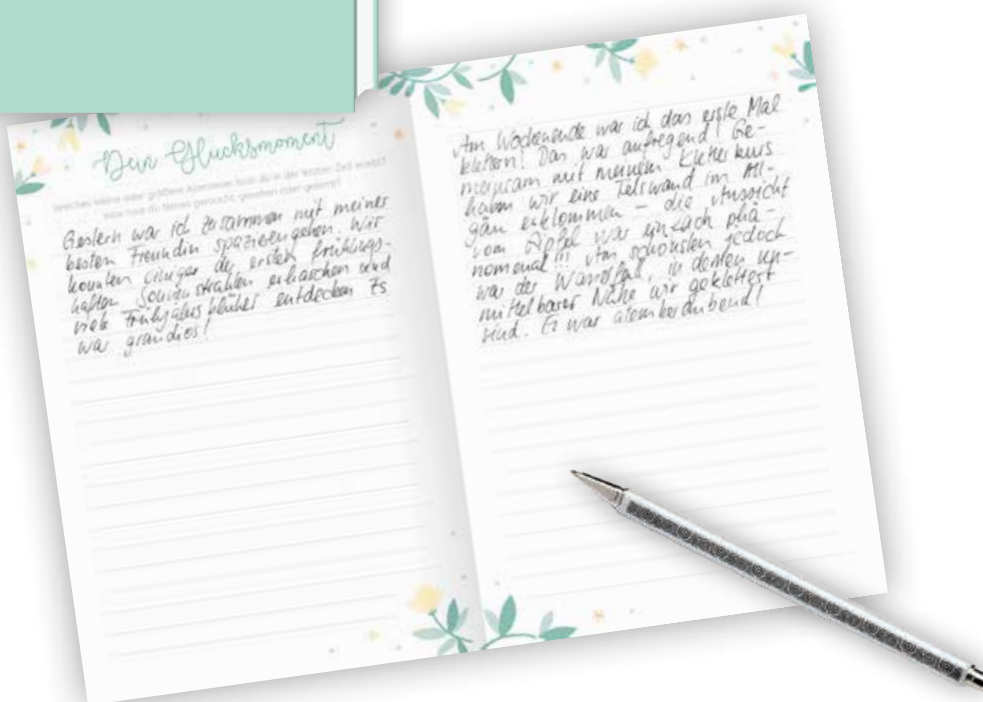 Dein Glücksmoment
Welches kleine oder größere Abenteuer hast du in der letzten Zeit erlebt?
Was hast du Neues gemacht, gesehen oder gelernt?
Gestern war ich zusammen mit meiner
besten Freundin spazierengehen. Wir
konnten einige der ersten frühlings-
haften Sonnenstrahlen erhaschen und
viele Frühjahrsblüher entdecken Es
war grandios!
Am Wochenende war ich das erste Mal
klettern! Das war aufregend! Ge-
meinsam mit meinem Kletterkurs
haben wir eine Felswand im All-
gäu erklommen – die Aussicht
vom Gipfel war einfach phä-
nomenal!!! Am schönsten jedoch
war der Wandfall, in dessen un-
mittelbarer Nähe wir geklettert
sind. Es war atemberaubend!